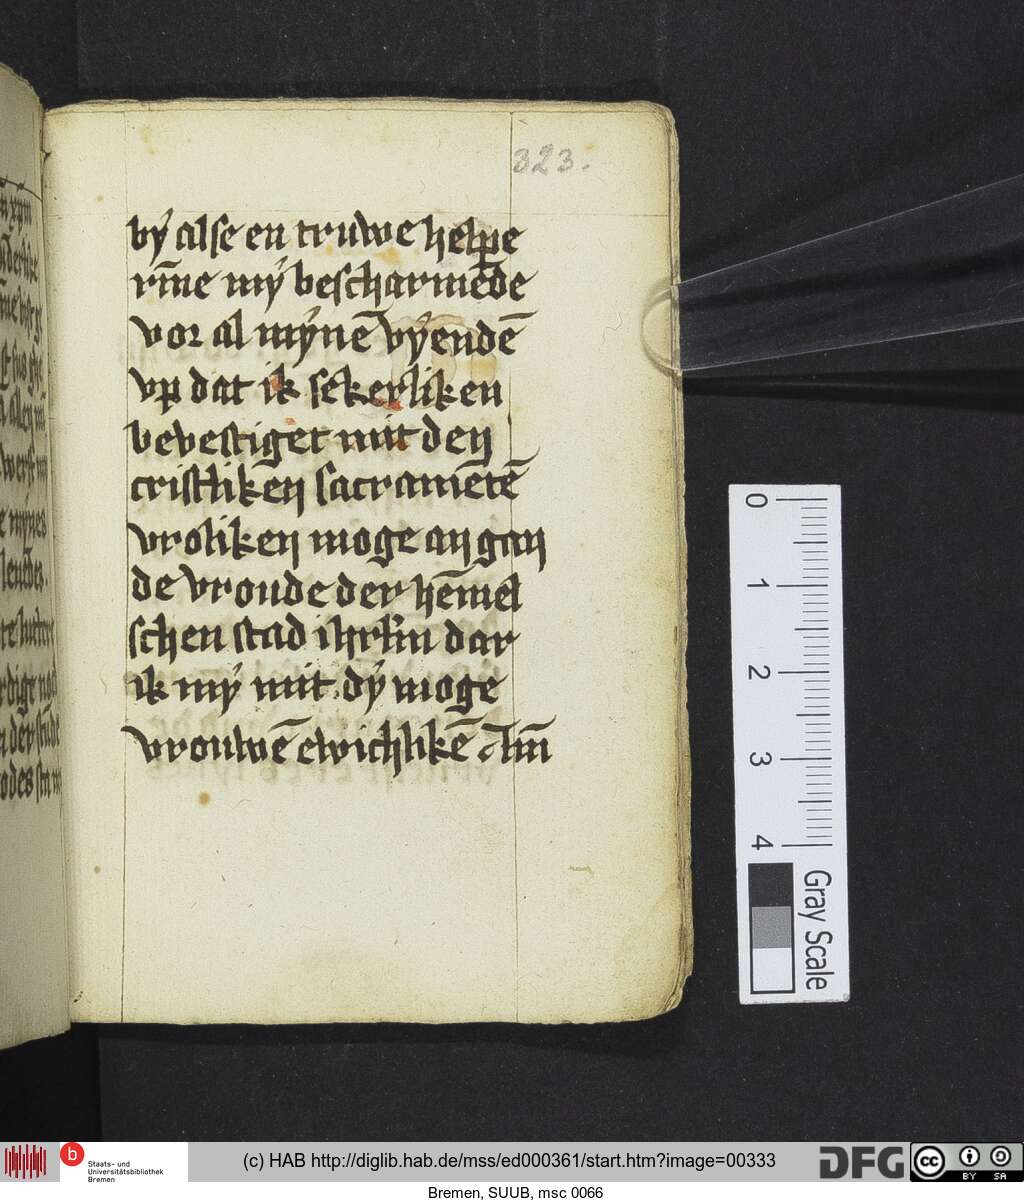 323.
by alse en truwe helpe
rīne my bescharmēde
vor al mynē vyendē
vp dat ik sekerliken
bevestiget mit den
cristliken sacramētē
vroliken moge an gan
de vroude der hēmel
schen stad ihrlm dar
ik my mit dy moge
vrouwē ewichlikē Am̄
0
1
2
3
4
Gray Scale
b Staats- und
Universitätsbibliothek
Bremen
(c) HAB http://diglib.hab.de/mss/ed000361/start.htm?image=00333
DFG
cc BY SA
Bremen, SUUB, msc 0066